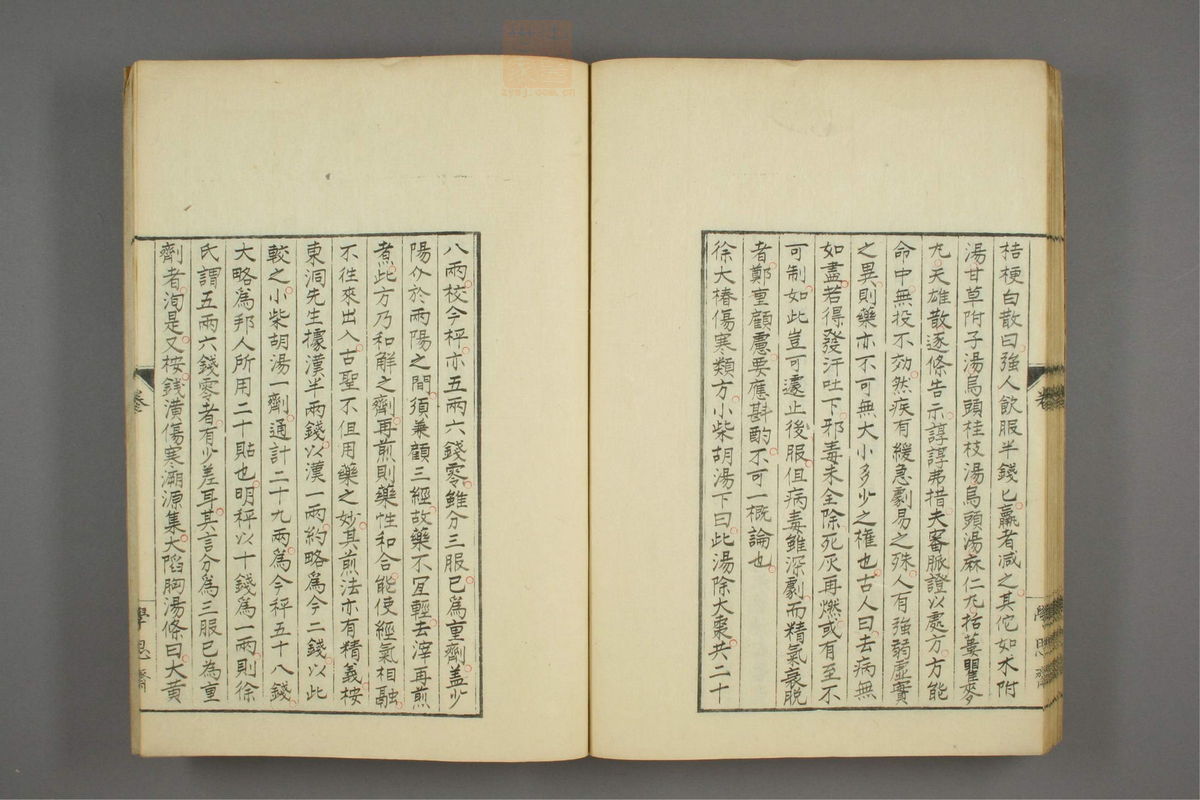 桔梗白散曰強人飲服半錢匕羸者減之其佗如朮附
湯甘草附子湯烏頭桂枝湯烏頭湯麻仁丸括蔞瞿麥
丸天雄散逐條告示諄諄弗措夫審脈證以處方方能
命中無投不効然疾有緩急劇易之殊人有強弱虛實
之異則藥亦不可無大小多少之権也古人曰去病無
如盡若得發汗吐下邪毒未全除死灰再燃或有至不
可制如此豈可遽止後服但病毒雖深劇而精氣衰脫
者鄭重顧慮要應斟酌不可一概論也
徐大椿傷寒類方小柴胡湯下曰此湯除大棗共二十
八兩校今秤亦五兩六錢零雖分三服已爲重劑蓋少
陽介於兩陽之間須兼顧三經故藥不宜輕去滓再煎
煮此方乃和解之劑再煎則藥性和合能使經氣相融
不徃來出入古聖不但用藥之妙其煎法亦有精義桉
東洞先生據漢半兩錢以漢一兩約略爲今二錢以此
較之小柴胡湯一劑通計二十九兩爲今秤五十八錢
大略爲邦人所用二十貼也明秤以十錢爲一兩則徐
氏謂五兩六錢零者有少差耳其言分爲三服已為重
劑者洵是又桉錢潢傷寒溯源集大陷胸湯條曰大黃
學思齋
zysj.com.cn